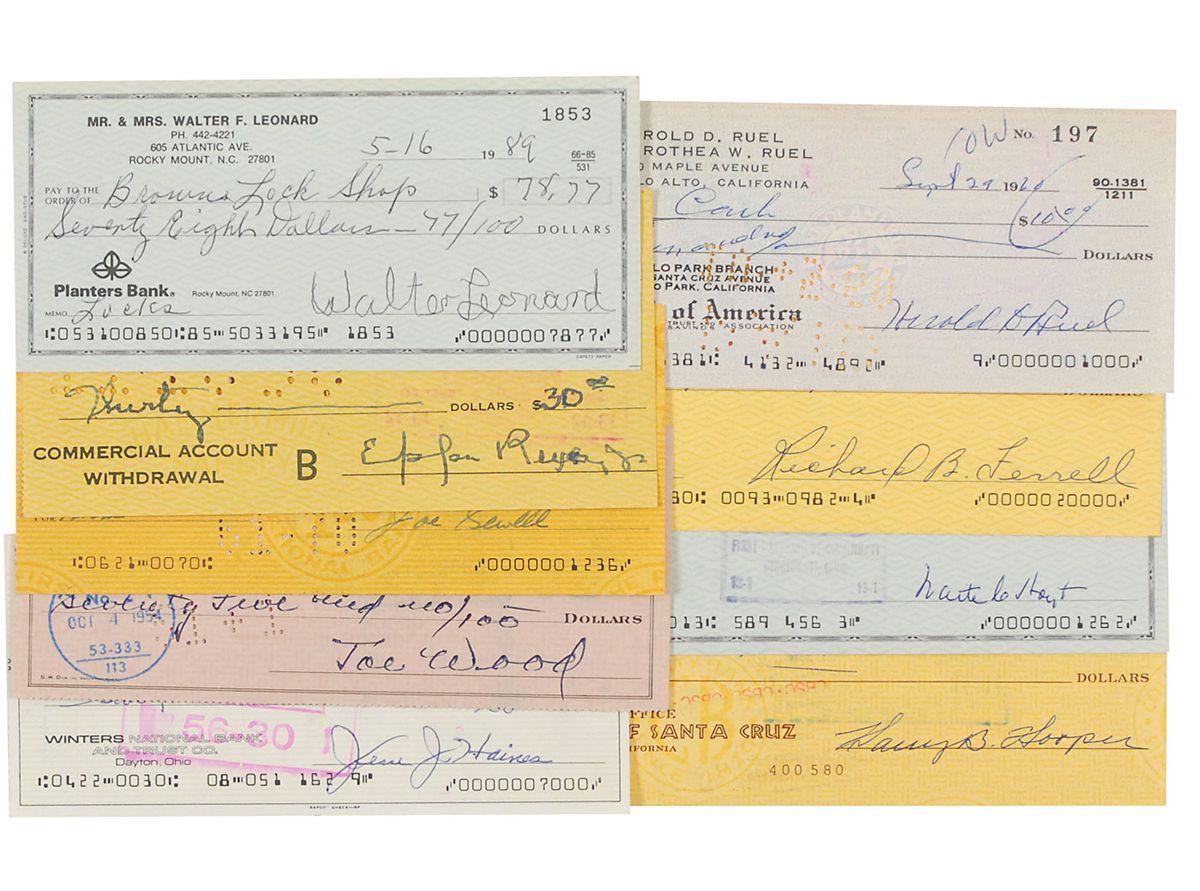 MR. & MRS. WALTER F. LEONARD
PH. 442-4221
605 ATLANTIC AVE.
ROCKY MOUNT, N.C. 27801
1853
5-16 19 89
66-85
531
PAY TO THE
ORDER OF Browns Lock Shop $ 78.77
Seventy Eight Dollars — 77/100 DOLLARS
Planters Bank® Rocky Mount, NC 27801
MEMO Locks
Walter Leonard
⑆053100850⑆85⑉5033195⑈ 1853 ⑇0000007877⑇
SAFETY PAPER
Thirty DOLLARS $30
COMMERCIAL ACCOUNT
WITHDRAWAL
B
Eppa Rixey, Jr
Joe Sewell
⑆0621⑉0070⑆ ⑇0000001236⑇
No.
OCT 4 1954
53-333
113
and no/100 DOLLARS
Joe Wood
WINTERS NATIONAL BANK
AND TRUST CO.
Dayton, Ohio
56-30
Jesse J. Haines
⑆0422⑉0030⑆ 08⑉051 162 9⑈ ⑇0000007000⑇
ROLD D. RUEL
ROTHEA W. RUEL
0 MAPLE AVENUE
LO ALTO, CALIFORNIA
No. 197
Sept 29 19
90-1381
1211
Cash $10.00
DOLLARS
LO PARK BRANCH
SANTA CRUZ AVENUE
O PARK, CALIFORNIA
of America
TRUST AND SAVINGS ASSOCIATION
Herold D Ruel
381⑆ 4132⑉4892⑈ 9⑇0000001000⑇
DOLLARS
Richard B. Ferrell
30⑆ 0093⑉0982⑉4⑈ ⑇0000020000⑇
13-1 13-1
Waite C Hoyt
013⑆ 589 456 3⑈ ⑇0000001262⑇
DOLLARS
FFICE
F SANTA CRUZ
FORNIA
Harry B. Hooper
400580